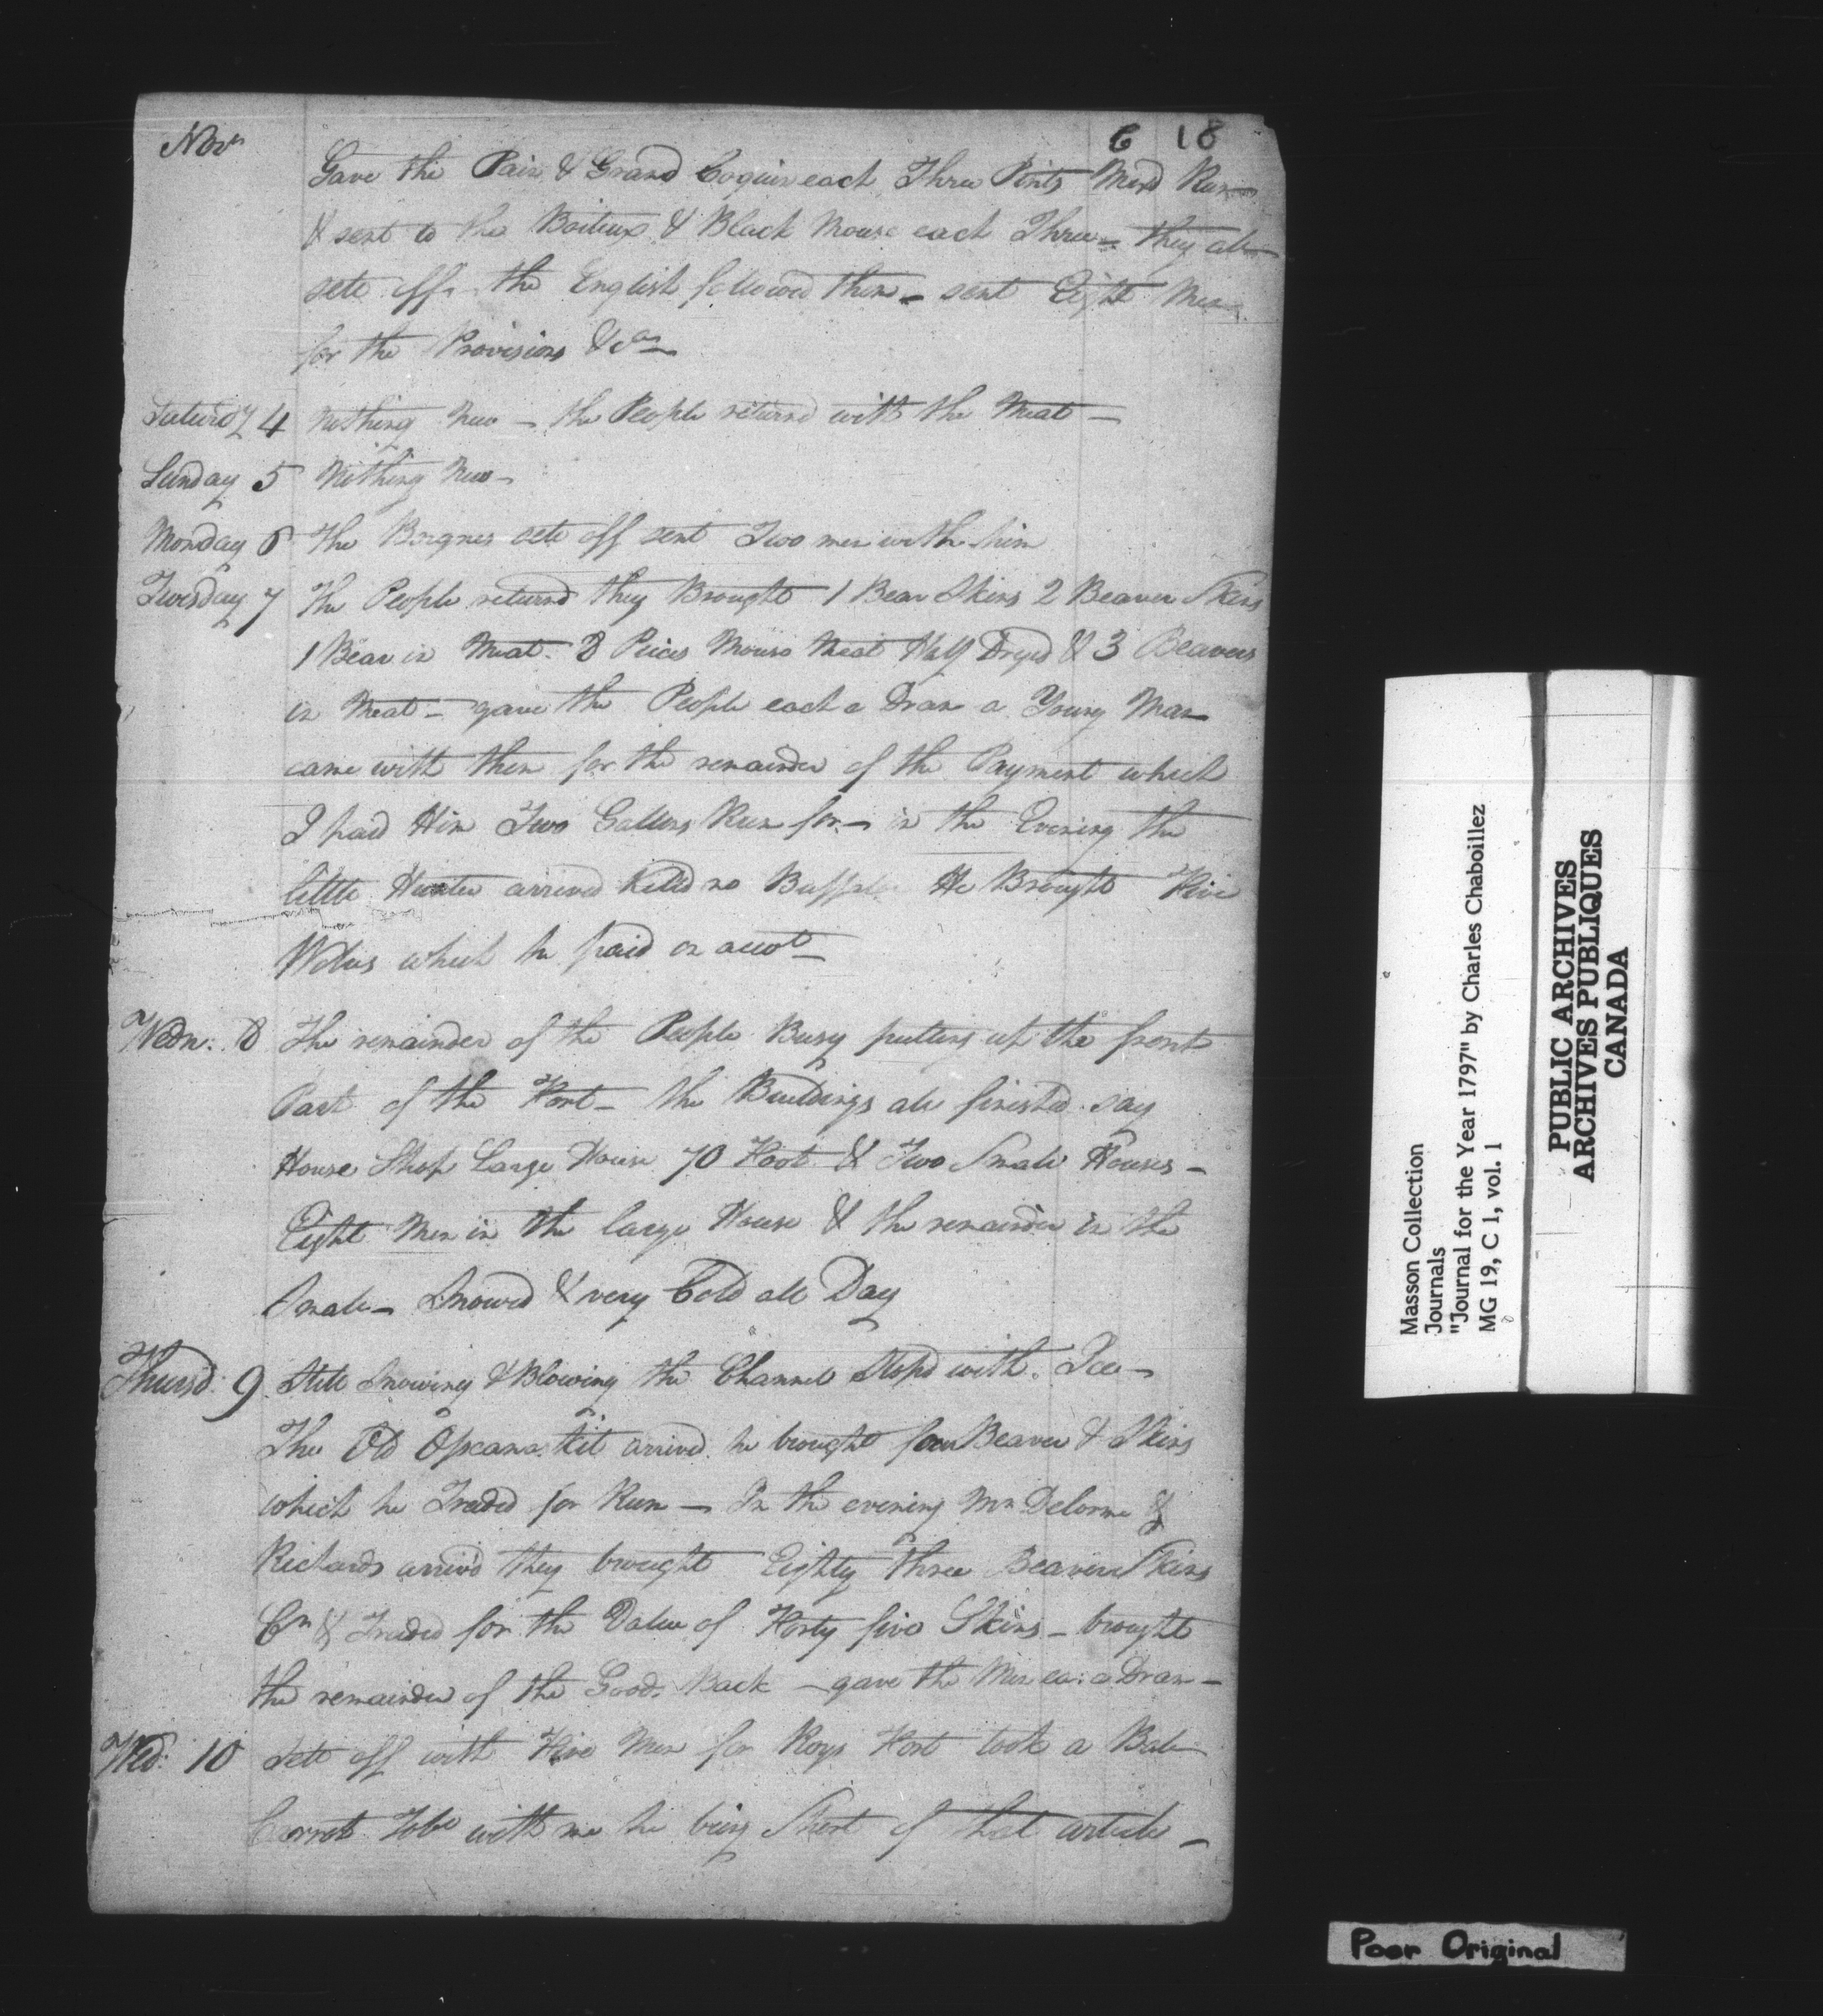 Novr
6 18
Gave the Pain & Grand Coquin each Three Pints Mixd Rum
& sent to the Boiteux & Black Mouse each Three — they all
sett off — the English followed them — sent Eight Men
for the Provisions &ca —
Saturdy 4 Nothing New — the People returnd with the Meat —
Sunday 5 Nothing New —
Monday 6 The Borgnes sett off sent Two men with him
Tuesday 7 The People returnd they Brought 1 Bear Skins 2 Beaver Skins
1 Bear in Meat 8 Peices Mouse Meat Half Dryed & 3 Beavers
in Meat — gave the People each a Dram a Young Man
came with them for the remainder of the Payment which
I paid Him Two Gallons Rum for — in the Evening the
little Hunter arrived Killed no Buffalo He Brought Five
Wolves which he paid on accot —
Wedn: 8 The remainder of the People Busy putting up the front
Part of the Fort — the Buildings all finished say
House Shop Large House 70 Foot & Two Small Houses —
Eight Men in the large House & the remainder in the
Small — Snowed & very Cold all Day
Thursd: 9 Still Snowing & Blowing the Channel Stopd with Ice —
The Old arrived he brought four Beaver & Skins
which he Traded for Rum — In the evening Mr Delorme &
Richards arrivd they brought Eighty three Beaver Skins
Cr & Traded for the Value of Forty five Skins — brought
the remainder of the Goods Back — gave the Men ea: a Dram —
Wed: 10 Sett off with Five Men for Roys Fort took a Bale
Carrot Tobo with me he being Short of that article —
Masson Collection
Journals
"Journal for the Year 1797" by Charles Chaboillez
MG 19, C 1, vol. 1
PUBLIC ARCHIVES
ARCHIVES PUBLIQUES
CANADA
Poor Original